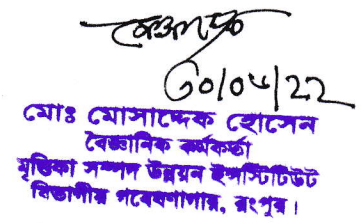 ৩০/০৮/22
মোঃ মোসাদ্দেক হোসেন
বৈজ্ঞানিক কর্মকর্তা
মৃত্তিকা সম্পদ উন্নয়ন ইন্সটিটিউট
বিভাগীয় গবেষণাগার, রংপুর।